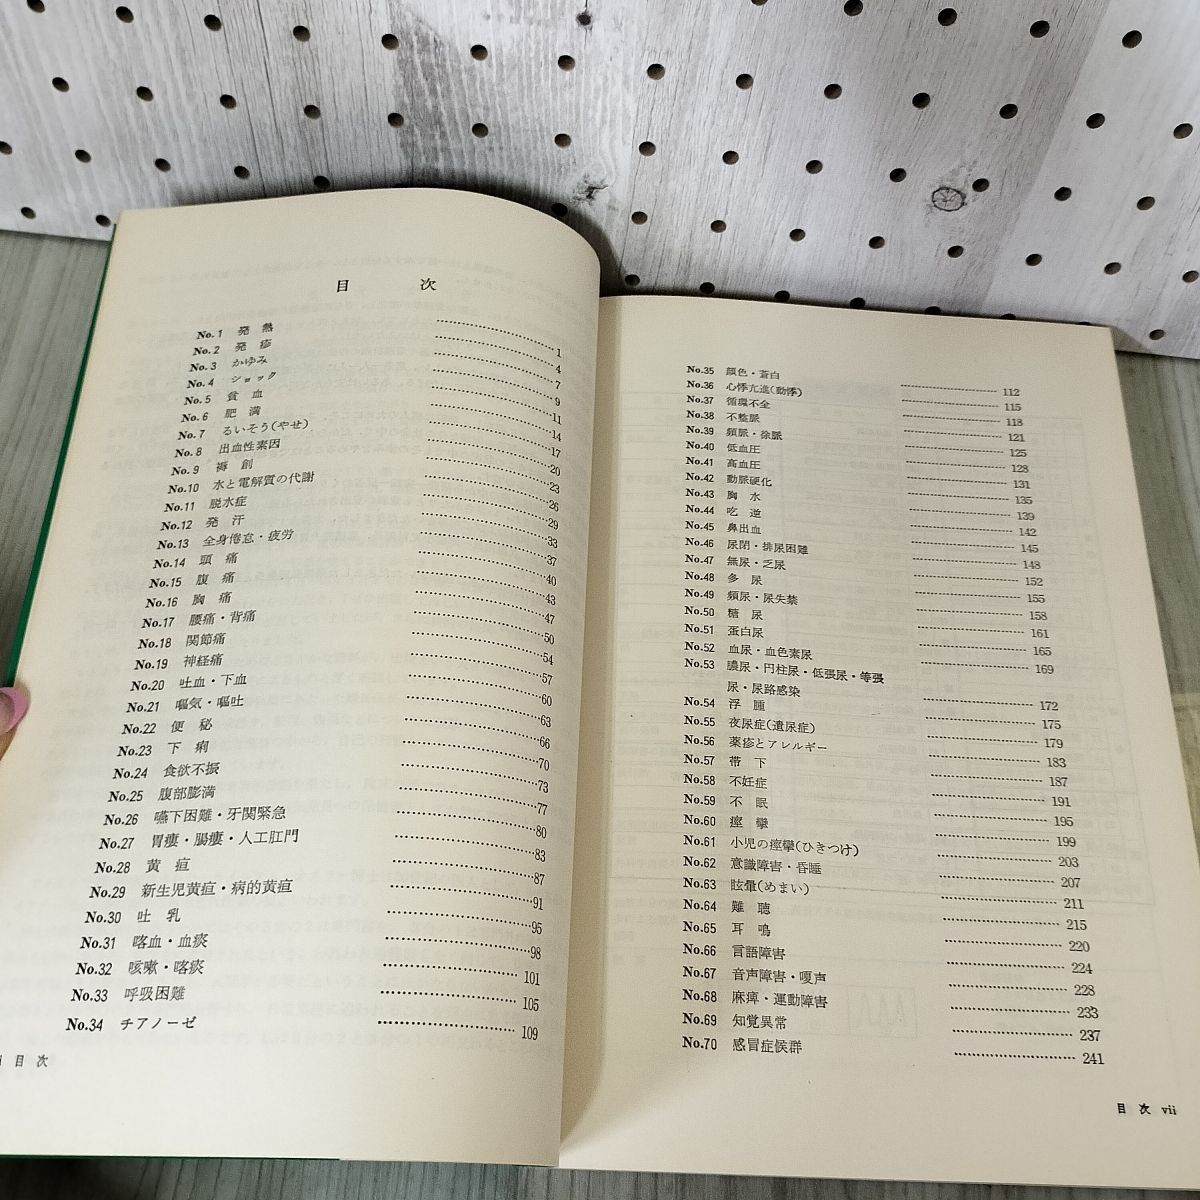 目次
No.1 発熱 1
No.2 発疹 4
No.3 かゆみ 7
No.4 ショック 9
No.5 貧血 11
No.6 肥満 14
No.7 るいそう(やせ) 17
No.8 出血性素因 20
No.9 褥創 23
No.10 水と電解質の代謝 26
No.11 脱水症 29
No.12 発汗 33
No.13 全身倦怠・疲労 37
No.14 頭痛 40
No.15 腹痛 43
No.16 胸痛 47
No.17 腰痛・背痛 50
No.18 関節痛 54
No.19 神経痛 57
No.20 吐血・下血 60
No.21 嘔気・嘔吐 63
No.22 便秘 66
No.23 下痢 70
No.24 食欲不振 73
No.25 腹部膨満 77
No.26 嚥下困難・牙関緊急 80
No.27 胃瘻・腸瘻・人工肛門 83
No.28 黄疸 87
No.29 新生児黄疸・病的黄疸 91
No.30 吐乳 95
No.31 喀血・血痰 98
No.32 咳嗽・喀痰 101
No.33 呼吸困難 105
No.34 チアノーゼ 109
目次
No.35 顔色・蒼白 112
No.36 心悸亢進(動悸) 115
No.37 循環不全 118
No.38 不整脈 121
No.39 頻脈・徐脈 125
No.40 低血圧 128
No.41 高血圧 131
No.42 動脈硬化 135
No.43 胸水 139
No.44 吃逆 142
No.45 鼻出血 145
No.46 尿閉・排尿困難 148
No.47 無尿・乏尿 152
No.48 多尿 155
No.49 頻尿・尿失禁 158
No.50 糖尿 161
No.51 蛋白尿 165
No.52 血尿・血色素尿 169
No.53 膿尿・円柱尿・低張尿・等張
尿・尿路感染 172
No.54 浮腫 175
No.55 夜尿症(遺尿症) 179
No.56 薬疹とアレルギー 183
No.57 帯下 187
No.58 不妊症 191
No.59 不眠 195
No.60 痙攣 199
No.61 小児の痙攣(ひきつけ) 203
No.62 意識障害・昏睡 207
No.63 眩暈(めまい) 211
No.64 難聴 215
No.65 耳鳴 220
No.66 言語障害 224
No.67 音声障害・嗄声 228
No.68 麻痺・運動障害 233
No.69 知覚異常 237
No.70 感冒症候群 241
目次 vii